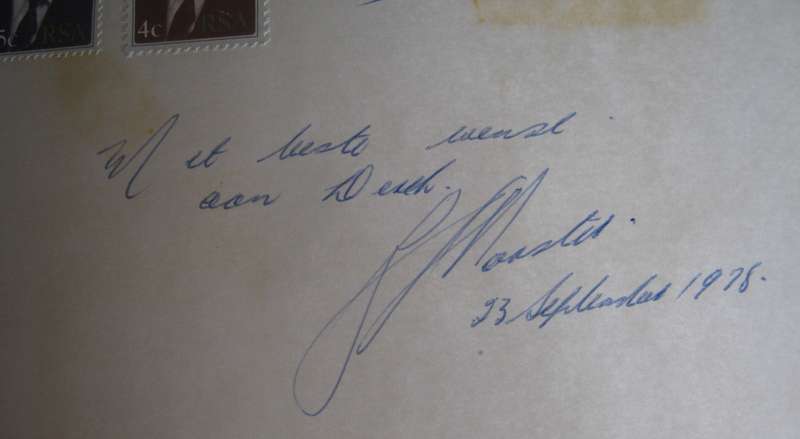 5c RSA 4c RSA
Met beste wense
aan Derek.
BJ Vorster.
23 September 1978.